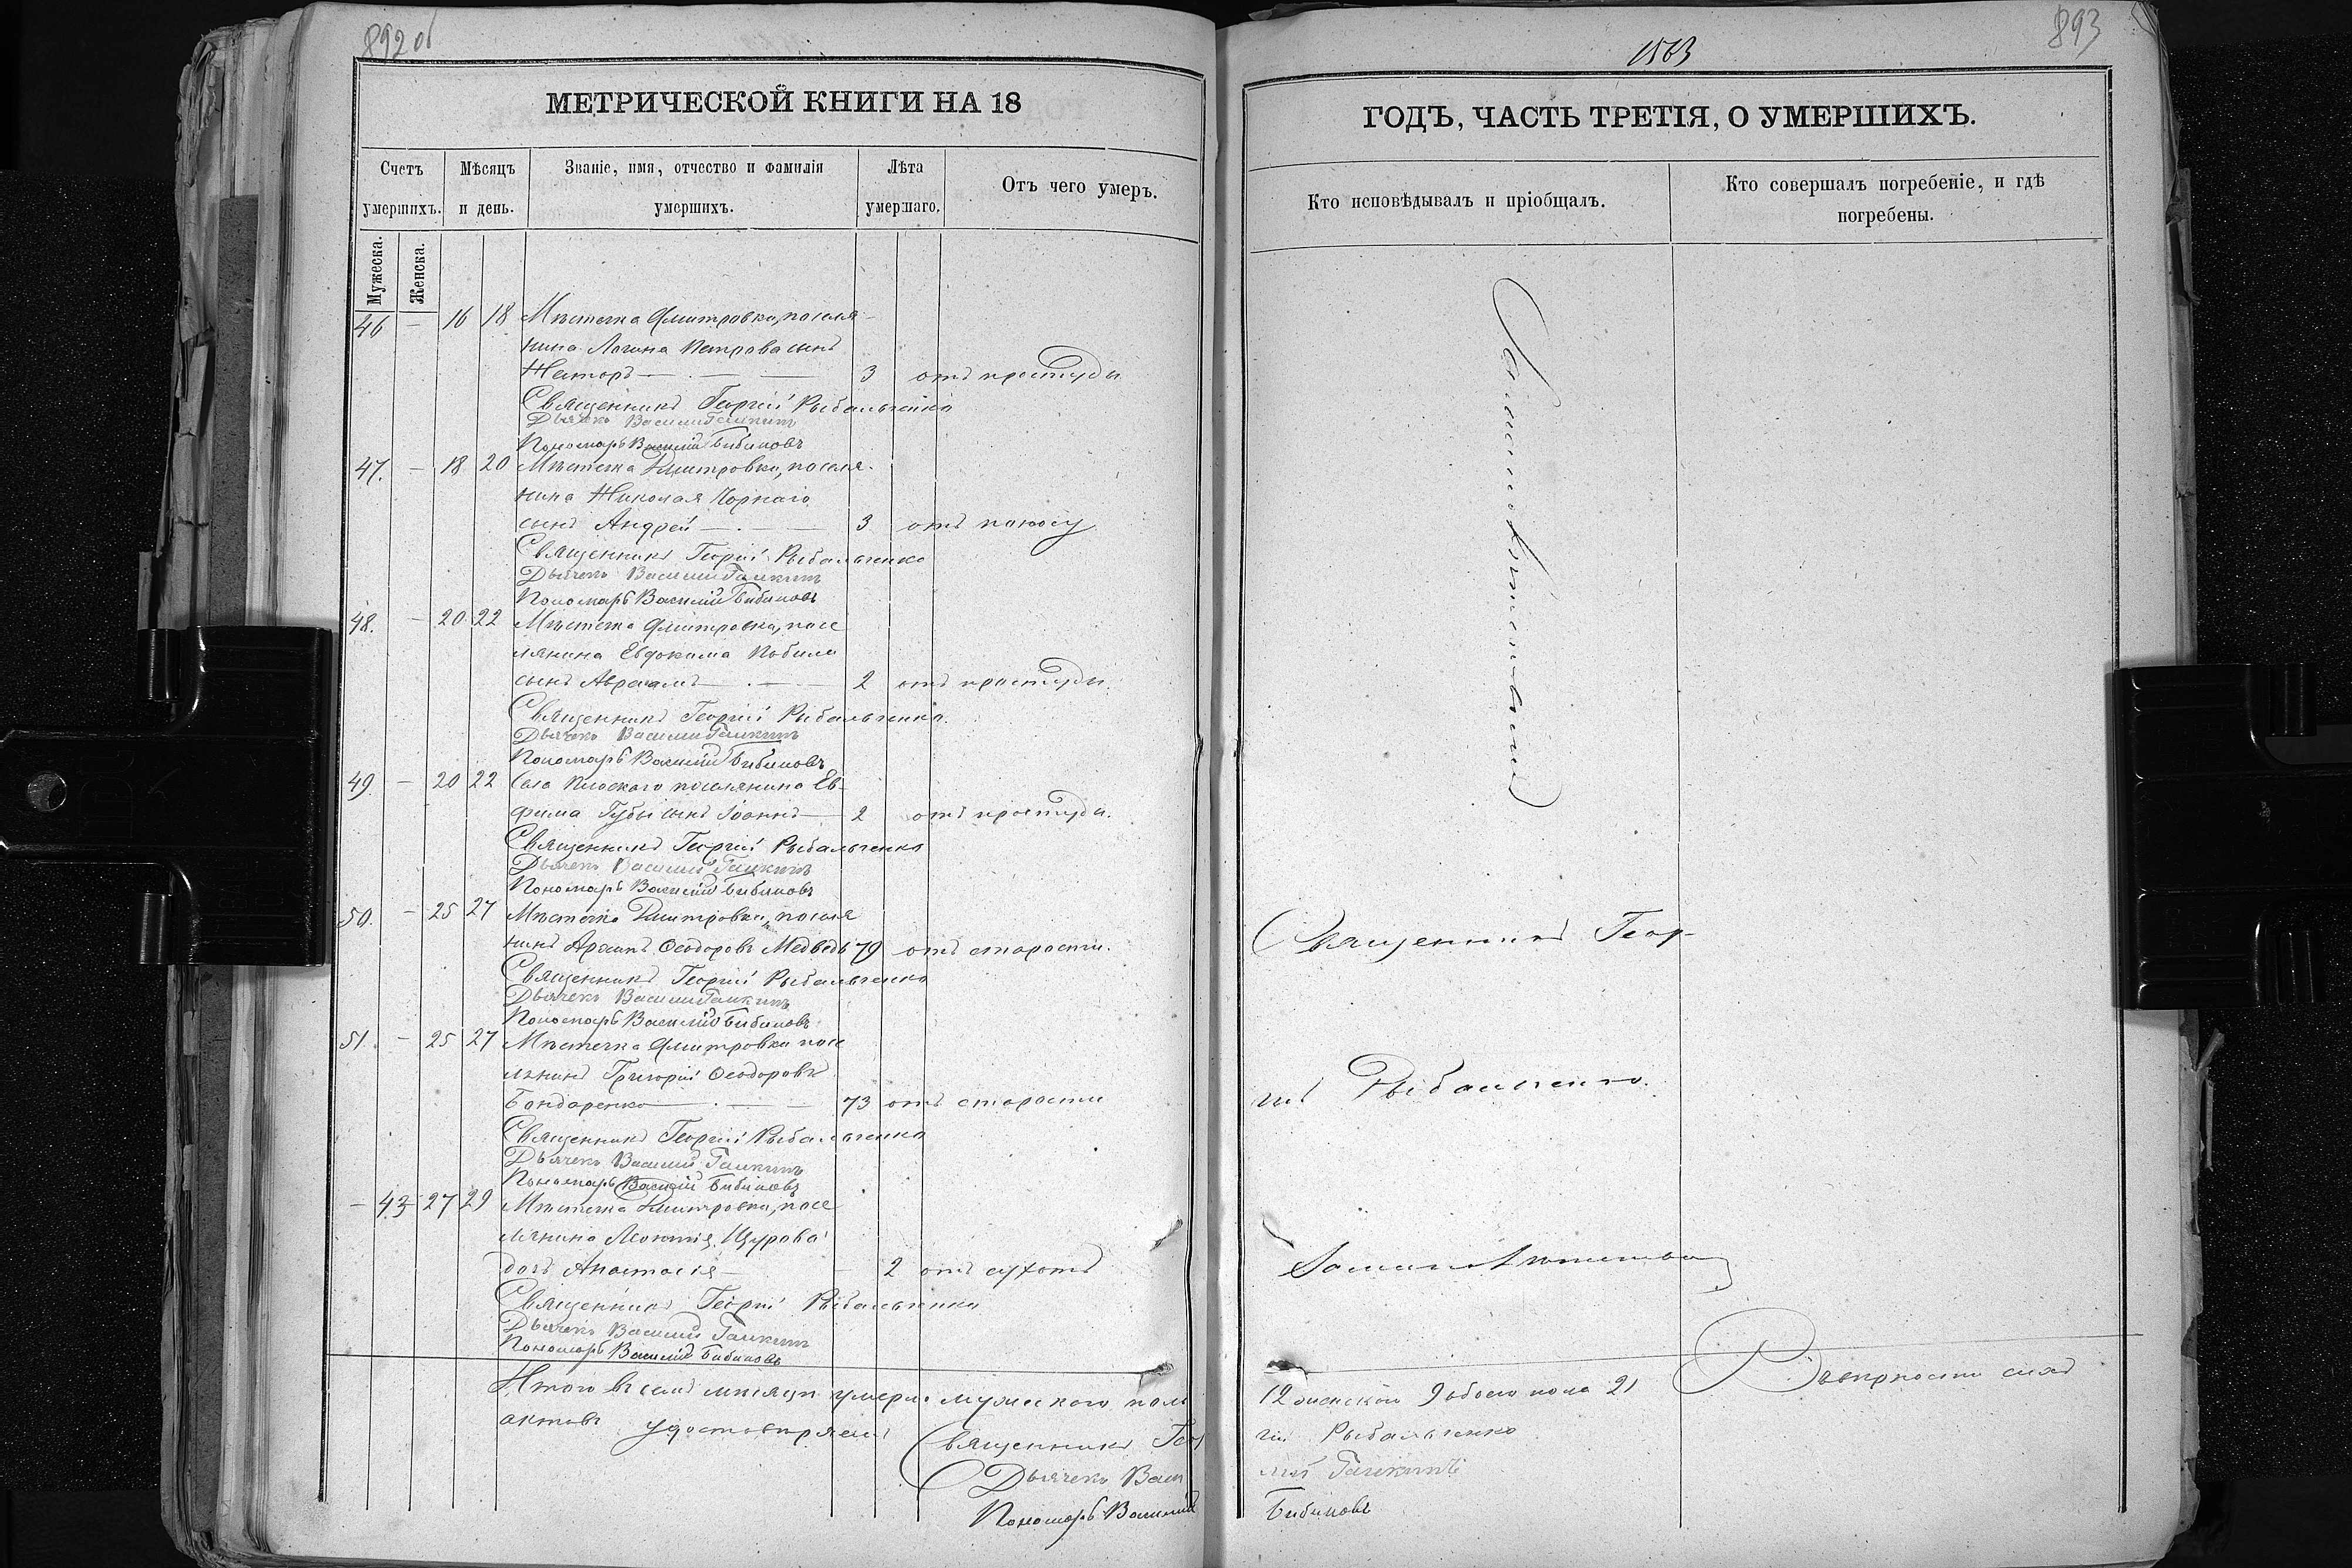 892 об
МЕТРИЧЕСКОЙ КНИГИ НА 18
Счетъ умершихъ.
Мѣсяцъ и день.
Званіе, имя, отчество и фамилія умершихъ.
Лѣта умершаго.
Отъ чего умеръ.
Мужеска.
Женска.
46 – 16 18 Мѣстечка Дмитровки, поселя-
нина Логина Петрова сынъ
Несторъ 3 отъ простуды
Священникъ Георгій Рыбальченко
Дьячекъ Василій Галкинъ
Пономарь Василій Бибиковъ
47. – 18 20 Мѣстечка Дмитровки, поселя-
нина Николая Чорнаго
сынъ Андрей 3 отъ поносу
Священникъ Георгій Рыбальченко
Дьячекъ Василій Галкинъ
Пономарь Василій Бибиковъ
48. – 20 22 Мѣстечка Дмитровки, посе
лянина Евдокима Кобили
сынъ Авраамъ 2 отъ простуды.
Священникъ Георгій Рыбальченко.
Дьячекъ Василій Галкинъ
Пономарь Василій Бибиковъ
49. – 20 22 Села Плоского поселянина Ев-
фима Губы сынъ Іоаннъ 2 отъ простуды.
Священникъ Георгій Рыбальченко
Дьячекъ Василій Галкинъ
Пономарь Василій Бибиковъ
50. – 25 27 Мѣстечка Дмитровки, поселя
нинъ Ѳеодоровъ Медвѣдь 79 отъ старости.
Священникъ Георгій Рыбальченко
Дьячекъ Василій Галкинъ
Пономарь Василій Бибиковъ
51. – 25 27 Мѣстечка Дмитровки посе
лянинъ Григорій Ѳеодоровъ
Бондаренко 73 отъ старости
Священникъ Георгій Рыбальченко
Дьячекъ Василій Галкинъ
Пономарь Василій Бибиковъ
– 43 27 29 Мѣстечка Дмитровки, посе
лянина Леонтія Щурова
дочь Анастасія 2 отъ сухотъ
Священникъ Георгій Рыбальченко
Дьячекъ Василій Галкинъ
Пономарь Василій Бибиковъ
Итого въ семъ мѣсяцѣ умерло мужескаго пола
актовъ удостовѣряемъ
Священникъ Геор
Дьячекъ Васи
Пономарь Василій
893
1863
ГОДЪ, ЧАСТЬ ТРЕТІЯ, О УМЕРШИХЪ.
Кто исповѣдывалъ и пріобщалъ.
Кто совершалъ погребеніе, и гдѣ погребены.
Священникъ Геор-
гій Рыбальченко.
12 женскаго 9 обоего пола 21 Вѣрность сихъ
гій Рыбальченко
лій Галкинъ
Бибиковъ